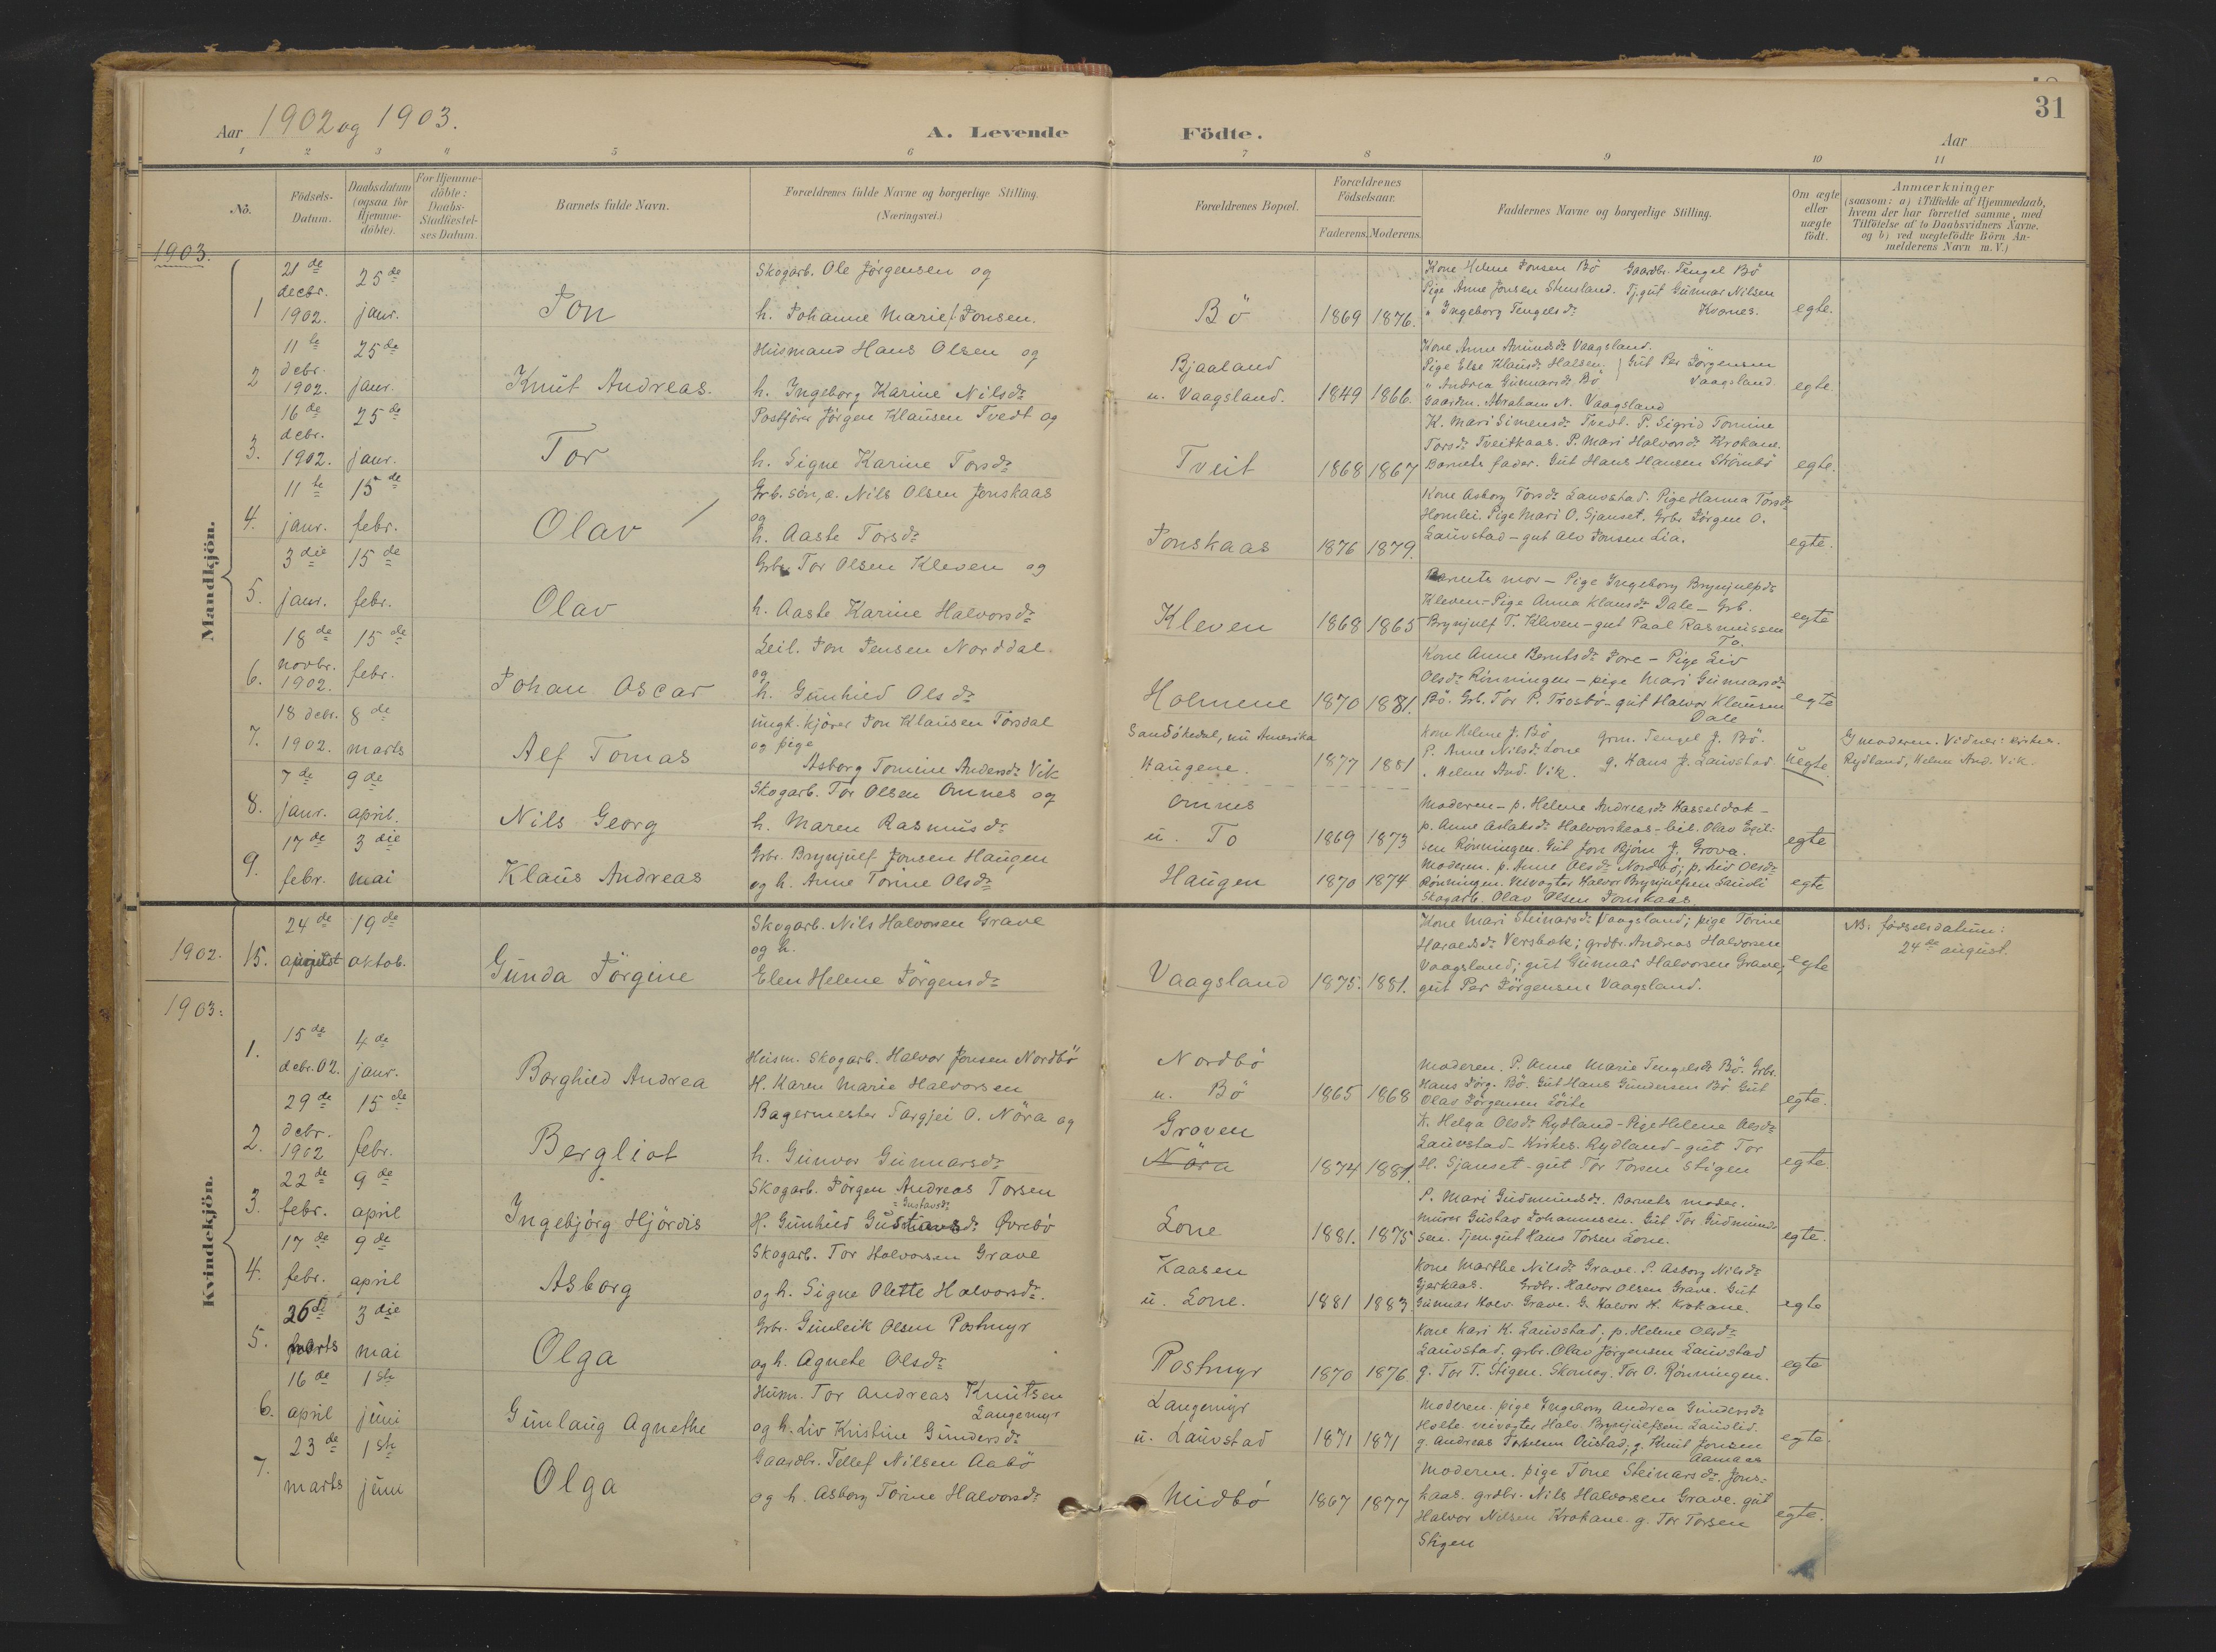 31
Aar 1902 og 1903.
A. Levende Födte.
Aar
1 2 3 4 5 6 7 8 9 10 11
No.
Födsels-Datum.
Daabsdatum (ogsaa for Hjemme-döbte).
For Hjemme-döbte: Daabs-Stadfæstelses Datum.
Barnets fulde Navn.
Forældrenes fulde Navne og borgerlige Stilling. (Næringsvei.)
Forældrenes Bopæl.
Forældrenes Födselsaar.
Faderens. Moderens.
Faddernes Navne og borgerlige Stilling.
Om ægte eller uægte födt.
Anmærkninger
(saasom: a) i Tilfælde af Hjemmedaab,
hvem der har forrettet samme, med
Tilföielse af to Daabsvidners Navne.
og b) ved uægtefödte Börn An-
melderens Navn m. V.)
1903.
Mandkjön.
1 21de decbr. 1902. 25de janr. Jon
Skogarb. Ole Jörgensen og
h. Johanne Marie Jonsen.
Bö 1869 1876.
Kone Helene Jonsen Bö Gaardbr. Tengel Bö
Pige Anne Jonsen Stensland. Tj.gut Gunnar Nilsen
" Ingeborg Tengelsdr Kvernes.
egte.
2 11te debr. 1902. 25de janr. Knut Andreas.
Husmand Hans Olsen og
h. Ingeborg Karine Nilsdr
Bjaaland
u. Vaagsland. 1849 1866.
Kone Anne Amundsdr Vaagsland.
Pige Else Klausdr Halsen. Gut Per Jörgensen
" Andrea Gunnarsdr Bö Vaagsland.
Gaardm. Abraham N. Vaagsland
egte
3. 16de debr. 1902. 25de janr. Tor
Postförer Jörgen Klausen Tvedt og
h. Signe Karine Torsdr
Tveit 1868 1867
K. Mari Simensdr Tvedt. P. Sigrid Tomine
Torsdr Tveitkaas. P. Mari Halvorsdr Krokane.
Barnets fader. Gut Hans Hansen Strömbö
egte.
4. 11te janr. 15de febr. Olav
Grb. sön, a. Nils Olsen Jonskaas
og
h. Aaste Torsdr
Jonskaas 1876 1879.
Kone Asborg Torsdr Lauvstad. Pige Hanna Torsdr
Homlei. Pige Mari O. Sjanset. Grbr Jörgen O.
Lauvstad – gut Alv Jonsen Lia.
egte.
5. 3die janr. 15de febr. Olav
Grbr. Tor Olsen Kleven og
h. Aaste Karine Halvorsdr
Kleven 1868 1865
Barnets mor – Pige Ingeborg Brynjulfsdr
Kleven – Pige Anna Klausdr Dale – Grb.
Brynjulf T. Kleven – gut Paal Rasmussen
To.
egte
6. 18de novbr. 1902. 15de febr. Johan Oscar
Leil. Jon Jensen Norddal
og
h. Gunhild Olsdr
Holmene 1870 1881.
Kone Anne Berntsdr Jore – Pige Liv
Olsdr Rönningen – pige Mari Gunnarsdr
Bö. Grb. Tor P. Trosbö – gut Halvor Klausen
Dale
egte
7. 18 debr. 1902. 8de marts Alf Tomas
ungk. kjörer Jon Klausen Torsdal
og pige
Asborg Tomine Andersdr Vik
Sandökedal, nu Amerika
Haugene. 1877 1881
Kone Helene J. Bö Grm. Tengel J. Bö.
P. Anne Nilsdr Lone g. Hans J. Lauvstad
. Helene And. Vik.
uegte.
G moderen. Vidner: Kirkes.
Rydland, Helene And. Vik.
8. 7de janr. 9de april. Nils Georg
Skogarb. Tor Olsen Omnes og
h. Maren Rasmusdr
Omnes
u. To 1869 1873
Moderen – p. Helene Andreasdr Hasseldok –
p. Anne Aslaksdr Halvorskaas – leil. Olav Egil-
sen Rönningen. Gut Jon Björn J. Grova.
egte
9. 17de febr. 3die mai Klaus Andreas
Grbr. Brynjulf Jonsen Haugen
og h. Anne Torine Olsdr
Haugen 1870 1874
Moderen. p. Anne Olsdr Nordbö; p. Liv Olsdr
Rönningen. Veivogter Halvor Brynjulfsen Lauvli
Skogarb. Olav Olsen Jonskaas.
egte
Kvindekjön.
1902. 15. 24de august 19de oktob. Gunda Jörgine
Skogarb. Nils Halvorsen Grave
og h.
Elen Helene Jörgensdr
Vaagsland 1875. 1881.
Kone Mari Steinarsdr Vaagsland; pige Torine
Haraldsdr Versbok; grdbr. Andreas Halvorsen
Vaagsland; gut Gunnar Halvorsen Grave;
gut Per Jörgensen Vaagsland.
egte
NB. födselsdatum:
24de august.
1903:
1. 15de debr. 02. 4de janr. Borghild Andrea
Husm. Skogarb. Halvor Jonsen Nordbö
H. Karen Marie Halvorsen
Nordbö
u. Bö 1865 1868
Moderen. P. Anne Marie Tengelsdr Bö. Grbr.
Hans Jörg. Bö. Gut Hans Gundersen Bö Gut
Olas Jörgensen Löite
egte.
2. 29de debr. 1902 15de febr. Bergliot
Bagermester Targjei O. Nöra og
h. Gunvor Gunnarsdr
Groven
Nöra 1874 1881.
K. Helga Olsdr Rydland – Pige Helene Olsdr
Lauvstad. Kirkes. Rydland – gut Tor
H. Sjanset – gut Tor Torsen Stigen
egte.
3. 22de febr. 9de april Ingebjörg Hjördis
Skogarb. Jörgen Andreas Torsen
: Gustavsdr
H. Gunhild Gustavsdr Övrebö
Lone 1881. 1875
P. Mari Gudmundsdr. Barnets moder.
Murer Gustav Johannesen. Gut Tor Gudmund-
sen. Tjen.gut Hans Torsen Lone.
egte.
4. 17de febr. 9de april Asborg
Skogarb. Tor Halvorsen Grave
og h. Signe Olette Halvorsdr.
Kaasen
u. Lone. 1881 1883.
Kone Marthe Nilsdr Grave. P. Asborg Nilsdr
Gjerkaas. Grdbr. Halvor Olsen Grave. Gut
Gunnar Halv. Grave. G. Halvor H. Krokane.
egte
5. 26de marts 3die mai Olga
Grbr. Gunleik Olsen Postmyr
og h. Agnete Olsdr
Postmyr 1870 1876.
Kone Kari K. Lauvstad; p. Helene Olsdr
Lauvstad, grbr. Olav Jörgensen Lauvstad
g. Tor T. Stigen. Skomag. Tor O. Rönningen.
egte
6. 16de april 1ste juni Gunlaug Agnethe
Husm. Tor Andreas Knutsen
Langemyr
og h. Liv Kristine Gundersdr
Langemyr
u. Lauvstad 1871 1871
Moderen. pige Ingeborg Andrea Gundersdr
Holte. veivogter Halv. Brynjulfsen Lauvlid.
g. Andreas Torsen Ouistad; g. Knut Jonsen
Aamaas
egte.
7. 23de marts 1ste juni Olga
Gaardbr. Tellef Nilsen Aabö
og h. Asborg Torine Halvorsdr
Midbö 1867 1877
Moderen. pige Tone Steinarsdr. Jons-
kaas. grdbr. Nils Halvorsen Grave. gut
Halvor Nilsen Krokane. g. Tor Torsen
Stigen
egte.